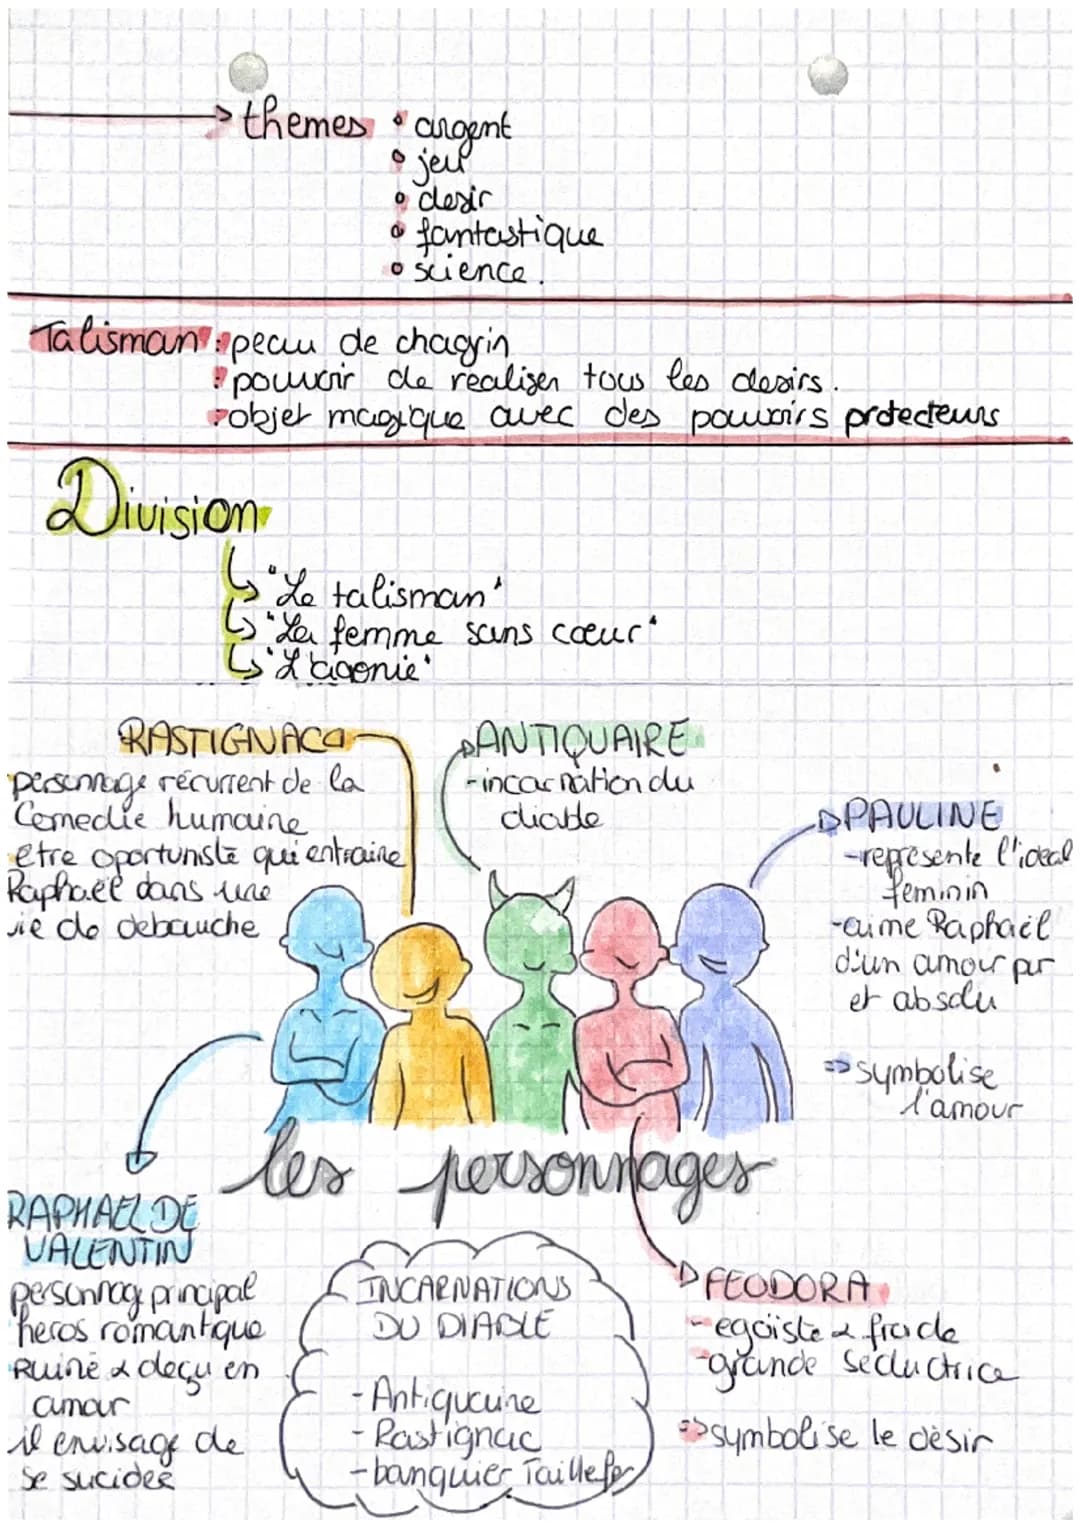 themes • argent
• jeu
• desir
• fantastique
• science.
Talisman : peau de chagrin
: pouvoir de realiser tous les desirs.
• objet magique avec des pouvoirs protecteurs
Division
↳ "Le talisman"
↳ "La femme sans cœur"
↳ "L'agonie"
RASTIGNAC
personnage récurrent de la
Comedie humaine
etre oportuniste qui entraine
Raphaël dans une
vie de debauche
ANTIQUAIRE
- incarnation du
diable
PAULINE
- représente l'ideal
feminin
- aime Raphaël
d'un amour pur
et absolu
=> symbolise
l'amour
les personnages
RAPHAEL DE
VALENTIN
personnag principal
heros romantique
Ruiné & deçu en
amour
il envisage de
se sucider
INCARNATIONS
DU DIABLE
- Antiquaire
- Rastignac
- banquier Taillefer
FEODORA
- egoïste & froide
- grande séductrice
=> symbolise le désir